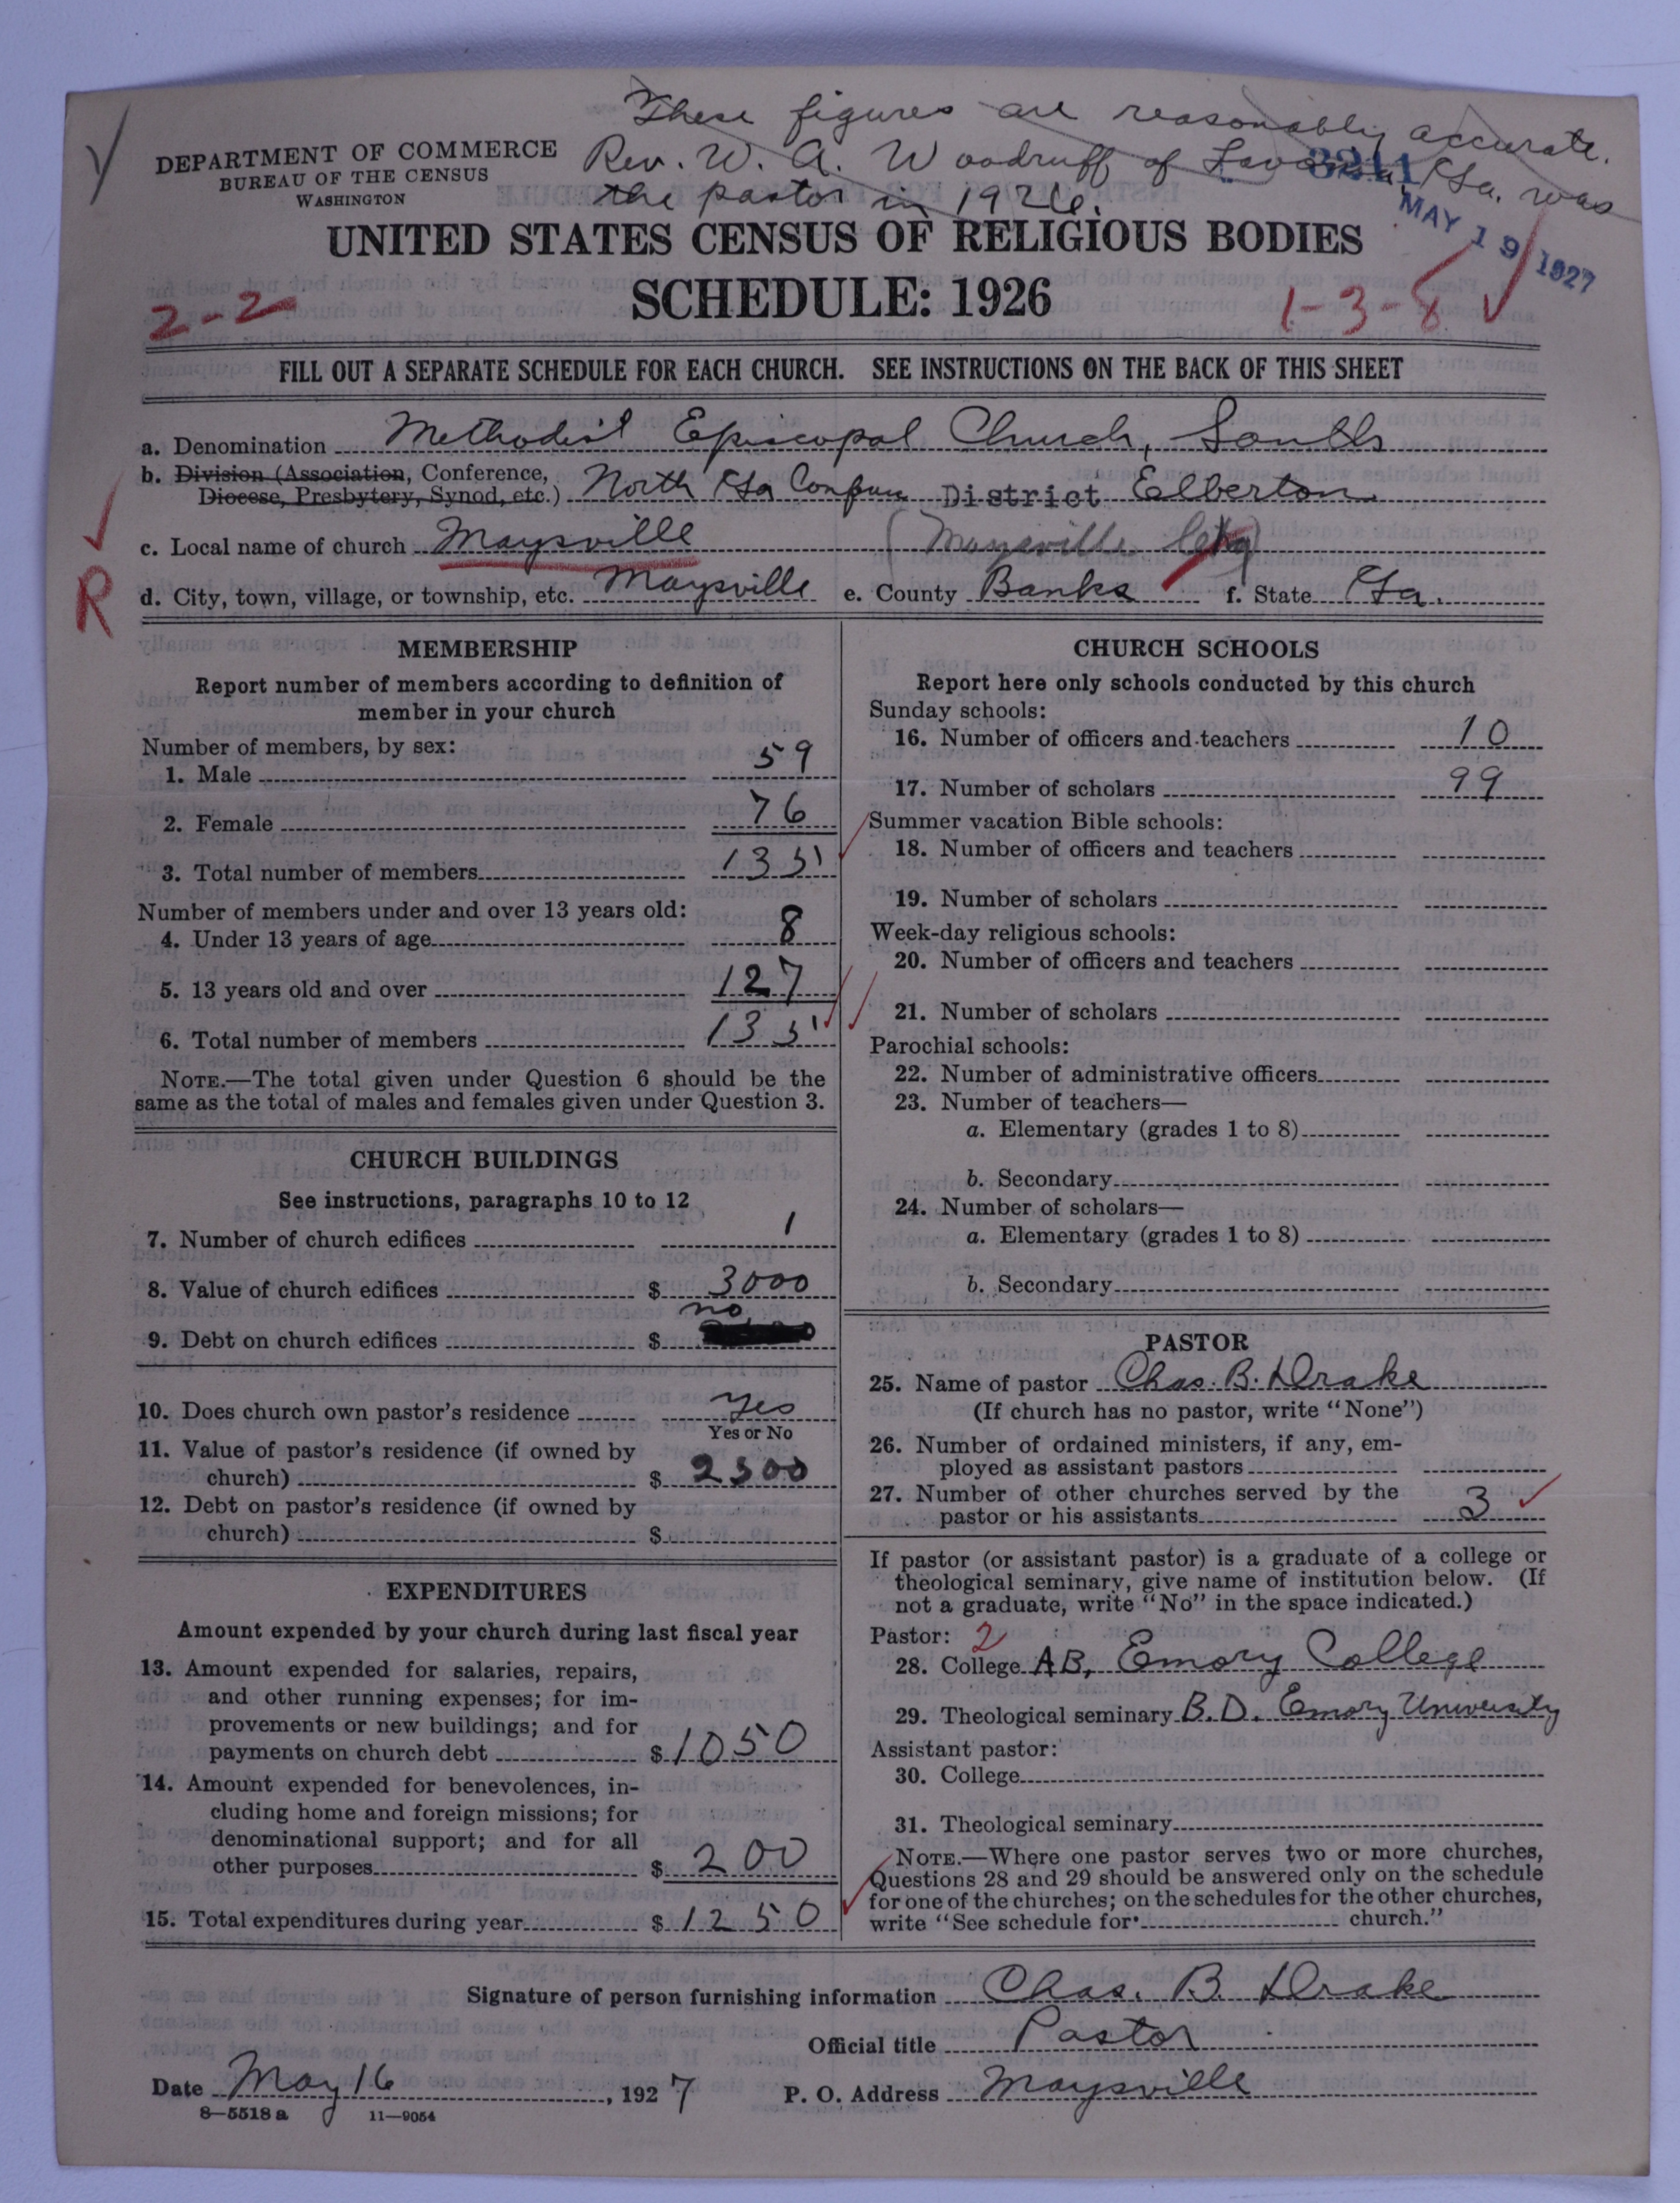 These figures are reasonably accurate.
Rev. W. A. Woodruff of Lavonia, Ga. was
the pastor in 1926.
3211
MAY 19 1927
DEPARTMENT OF COMMERCE
BUREAU OF THE CENSUS
WASHINGTON
UNITED STATES CENSUS OF RELIGIOUS BODIES
SCHEDULE: 1926
2-2
1-3-8
FILL OUT A SEPARATE SCHEDULE FOR EACH CHURCH. SEE INSTRUCTIONS ON THE BACK OF THIS SHEET
a. Denomination Methodist Episcopal Church, South
b. Division (Association, Conference,
Diocese, Presbytery, Synod, etc.) North Ga District Elberton
c. Local name of church Maysville (Maysville
R
d. City, town, village, or township, etc. Maysville e. County Banks f. State Ga.
MEMBERSHIP
Report number of members according to definition of
member in your church
Number of members, by sex:
1. Male 59
2. Female 76
3. Total number of members 135
Number of members under and over 13 years old:
4. Under 13 years of age 8
5. 13 years old and over 127
6. Total number of members 135
NOTE.—The total given under Question 6 should be the
same as the total of males and females given under Question 3.
CHURCH BUILDINGS
See instructions, paragraphs 10 to 12
7. Number of church edifices 1
8. Value of church edifices $ 3000
9. Debt on church edifices $ no
10. Does church own pastor's residence yes
Yes or No
11. Value of pastor's residence (if owned by
church) $ 2500
12. Debt on pastor's residence (if owned by
church) $
EXPENDITURES
Amount expended by your church during last fiscal year
13. Amount expended for salaries, repairs,
and other running expenses; for im-
provements or new buildings; and for
payments on church debt $ 1050
14. Amount expended for benevolences, in-
cluding home and foreign missions; for
denominational support; and for all
other purposes $ 200
15. Total expenditures during year $ 1250
CHURCH SCHOOLS
Report here only schools conducted by this church
Sunday schools:
16. Number of officers and teachers 10
17. Number of scholars 99
Summer vacation Bible schools:
18. Number of officers and teachers
19. Number of scholars
Week-day religious schools:
20. Number of officers and teachers
21. Number of scholars
Parochial schools:
22. Number of administrative officers
23. Number of teachers—
a. Elementary (grades 1 to 8)
b. Secondary
24. Number of scholars—
a. Elementary (grades 1 to 8)
b. Secondary
PASTOR
25. Name of pastor Chas. B. Drake
(If church has no pastor, write "None")
26. Number of ordained ministers, if any, em-
ployed as assistant pastors
27. Number of other churches served by the
pastor or his assistants 3
If pastor (or assistant pastor) is a graduate of a college or
theological seminary, give name of institution below. (If
not a graduate, write "No" in the space indicated.)
Pastor: 2
28. College AB, Emory College
29. Theological seminary B.D. Emory University
Assistant pastor:
30. College
31. Theological seminary
NOTE.—Where one pastor serves two or more churches,
Questions 28 and 29 should be answered only on the schedule
for one of the churches; on the schedules for the other churches,
write "See schedule for church."
Signature of person furnishing information Chas. B. Drake
Official title Pastor
Date May 16, 1927 P. O. Address Maysville
8—5518a 11—9054